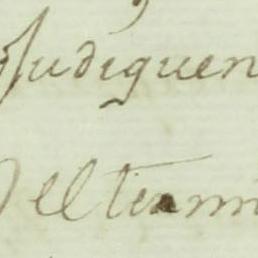 Judiquen
Del termi